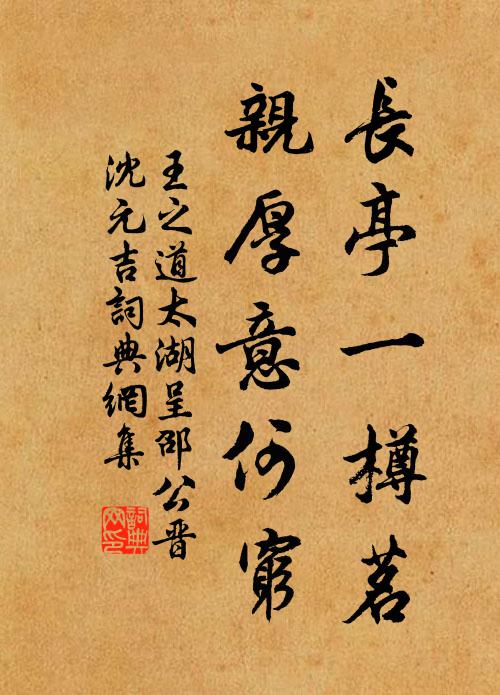 長亭一樽茗
親厚意何窮
王之道太湖呈邵公晋
沈元吉詞典網集
詞典网印